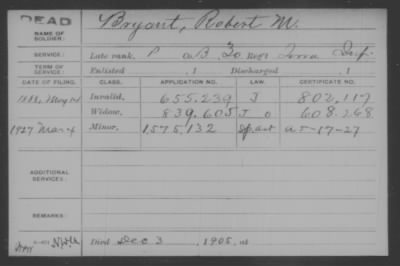 DEAD
NAME OF SOLDIER: Bryant, Robert M.
SERVICE: Late rank, P Co B, 30 Reg't Iowa Inf.
TERM OF SERVICE: Enlisted , 1 Discharged , 1
DATE OF FILING. CLASS. APPLICATION NO. LAW. CERTIFICATE NO.
1888, May 14 Invalid, 655.239 J 802.117
Widow, 839.605 J o 608.268
1927 Mar 4 Minor, 1575,132 Sp.act a 5-17-27
ADDITIONAL SERVICES:
REMARKS:
Died Dec 3, 1905, at